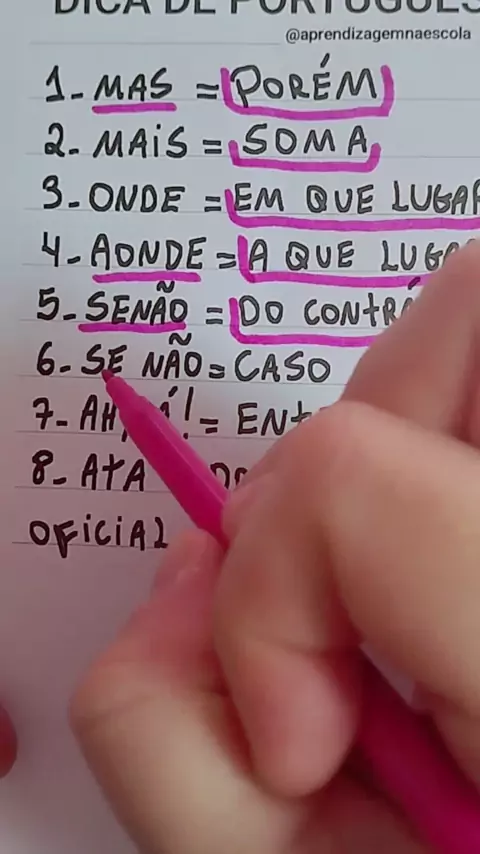 DICA DE PORTUGUÊS
@aprendizagemnaescola
1- MAS = PORÉM
2- MAIS = SOMA
3- ONDE = EM QUE LUGAR
4- AONDE = A QUE
5- SENÃO = DO
6- SE NÃO = CASO
7- =
8- ATA
OFICIAL